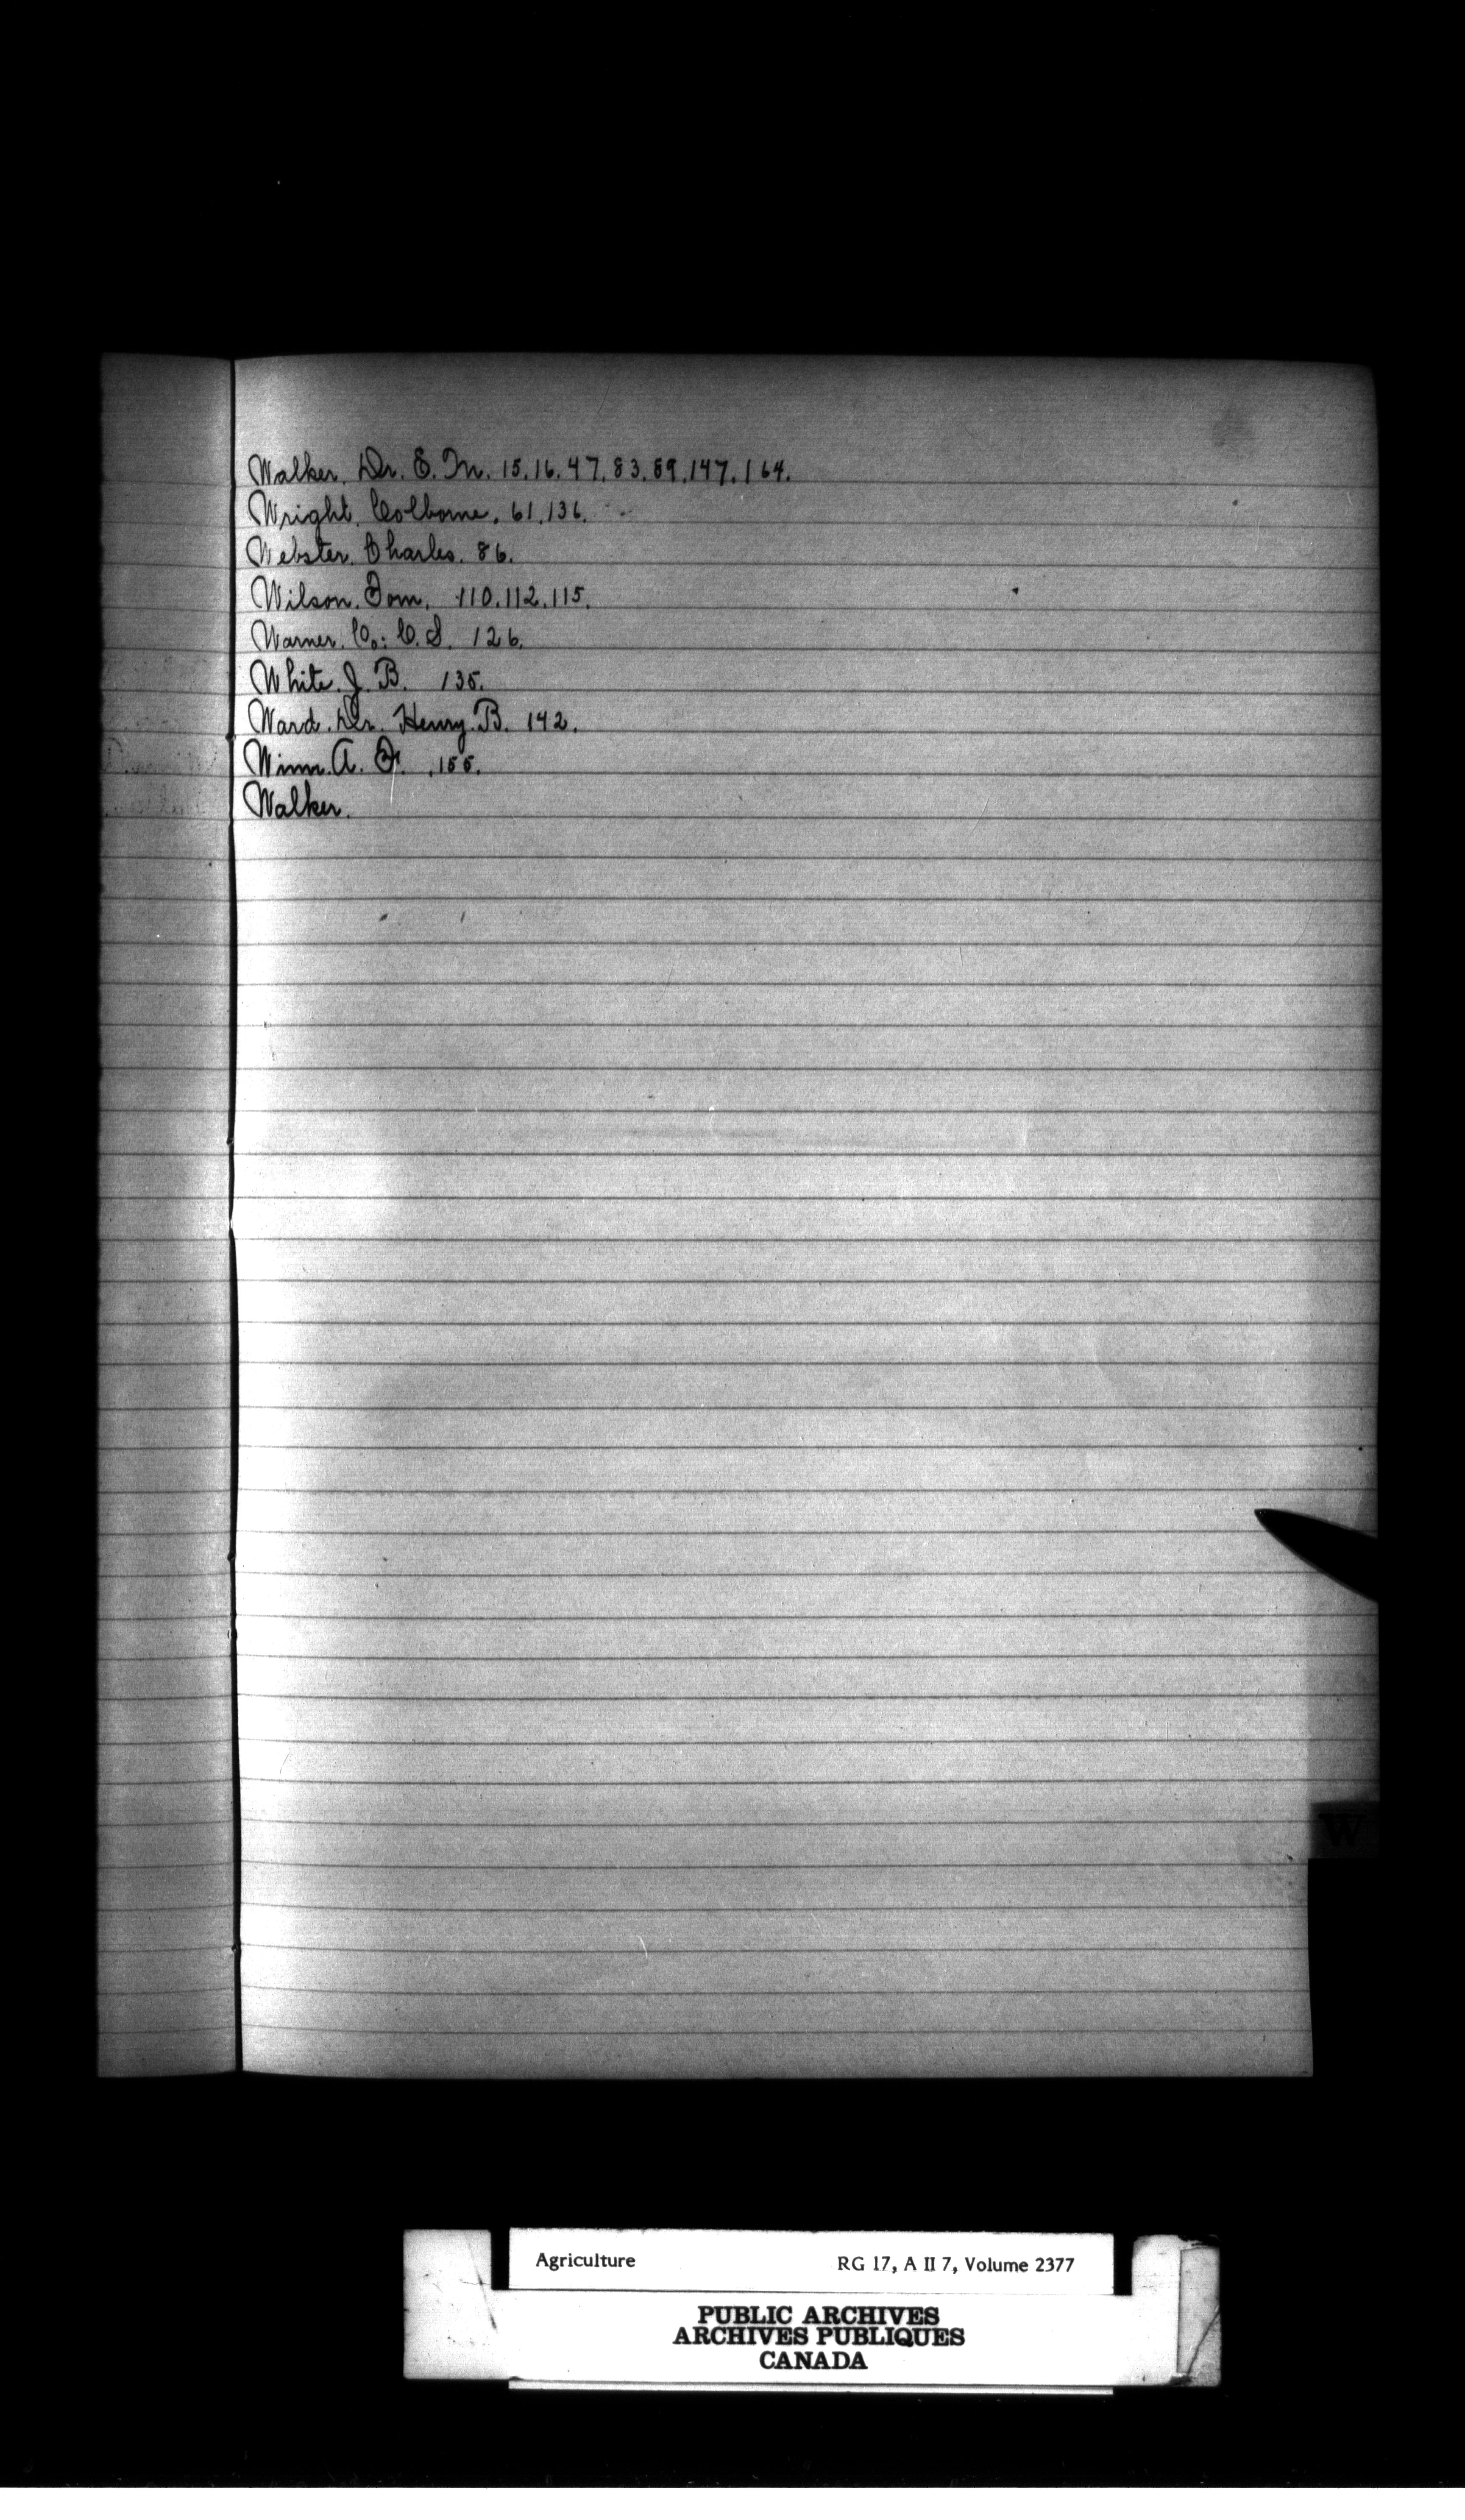 Walker. Dr. E. M. 15.16.47.83.89.147.164.
Wright. Colborne. 61.136.
Webster. Charles. 86.
Wilson. Tom. 110.112.115.
Warner. Co: C.S. 126.
White. J. B. 135.
Ward. Dr. Henry. B. 142.
Winn. A. F. 155.
Walker.
W
Agriculture RG 17, A II 7, Volume 2377
PUBLIC ARCHIVES
ARCHIVES PUBLIQUES
CANADA